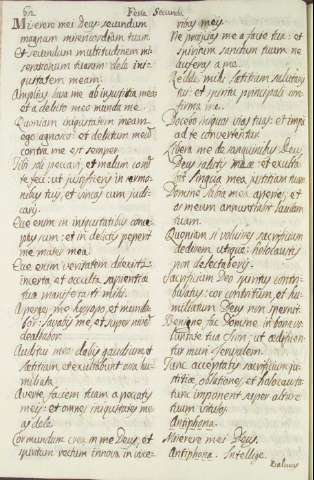 62
Feria Secunda
Miserere mei Deus secundum
magnam misericordiam tuam
Et secundum multitudinem mi-
serationum tuarum dele ini-
quitatem meam:
Amplius lava me ab iniquitate mea:
et a delicto meo munda me.
Quoniam iniquitatem meam
ego agnosco: et delictum meũ
contra me est semper.
Tibi soli peccavi, et malum corã
te feci: ut justificeris in sermo-
nibus tuis, et vincas cum judi-
caris.
Ecce enim in iniquitatibus conce-
ptus sum: et in delictis peperit
me mater mea.
Ecce enim veritatem dilexisti:
incerta, et occulta sapientiæ
tuæ manifestasti mihi.
Asperges me hyssopo, et munda-
bor: lavabis me, et super nivem
dealbabor.
Auditui meo dabis gaudium et
lætitiam, et exultabunt ossa hu-
miliata.
Averte faciem tuam a peccatis
meis: et omnes iniquitates me-
as dele.
Cor mundum crea in me Deus, et
spiritum rectum innova in visce-
ribus meis.
Ne projicias me a facie tua: et
spiritum sanctum tuum ne
auferas a me.
Redde mihi lætitiam salutaris
tui: et spiritu principali con-
firma me.
Docebo iniquos vias tuas: et impii
ad te convertentur.
Libera me de sanguinibus Deus,
Deus salutis meæ: et exulta-
bit lingua mea justitiam tuam
Domine labia mea aperies, et
os meum annuntiabit laudem
tuam.
Quoniam si voluisses sacrificium
dedissem utique: holocaustis
non delectaberis.
Sacrificium Deo spiritus contri-
bulatus: cor contritum, et hu-
miliatum Deus non spernet.
Benigne fac Domine in bona vo-
luntate tua Sion: ut ædificen-
tur muri Jerusalem.
Tunc acceptabis sacrificium ju-
stitiæ, oblationes, et holocausta:
tunc imponent super altare
tuum vitulos.
Antiphona.
Miserere mei Deus.
Antiphona. Intellige.
Psalmus